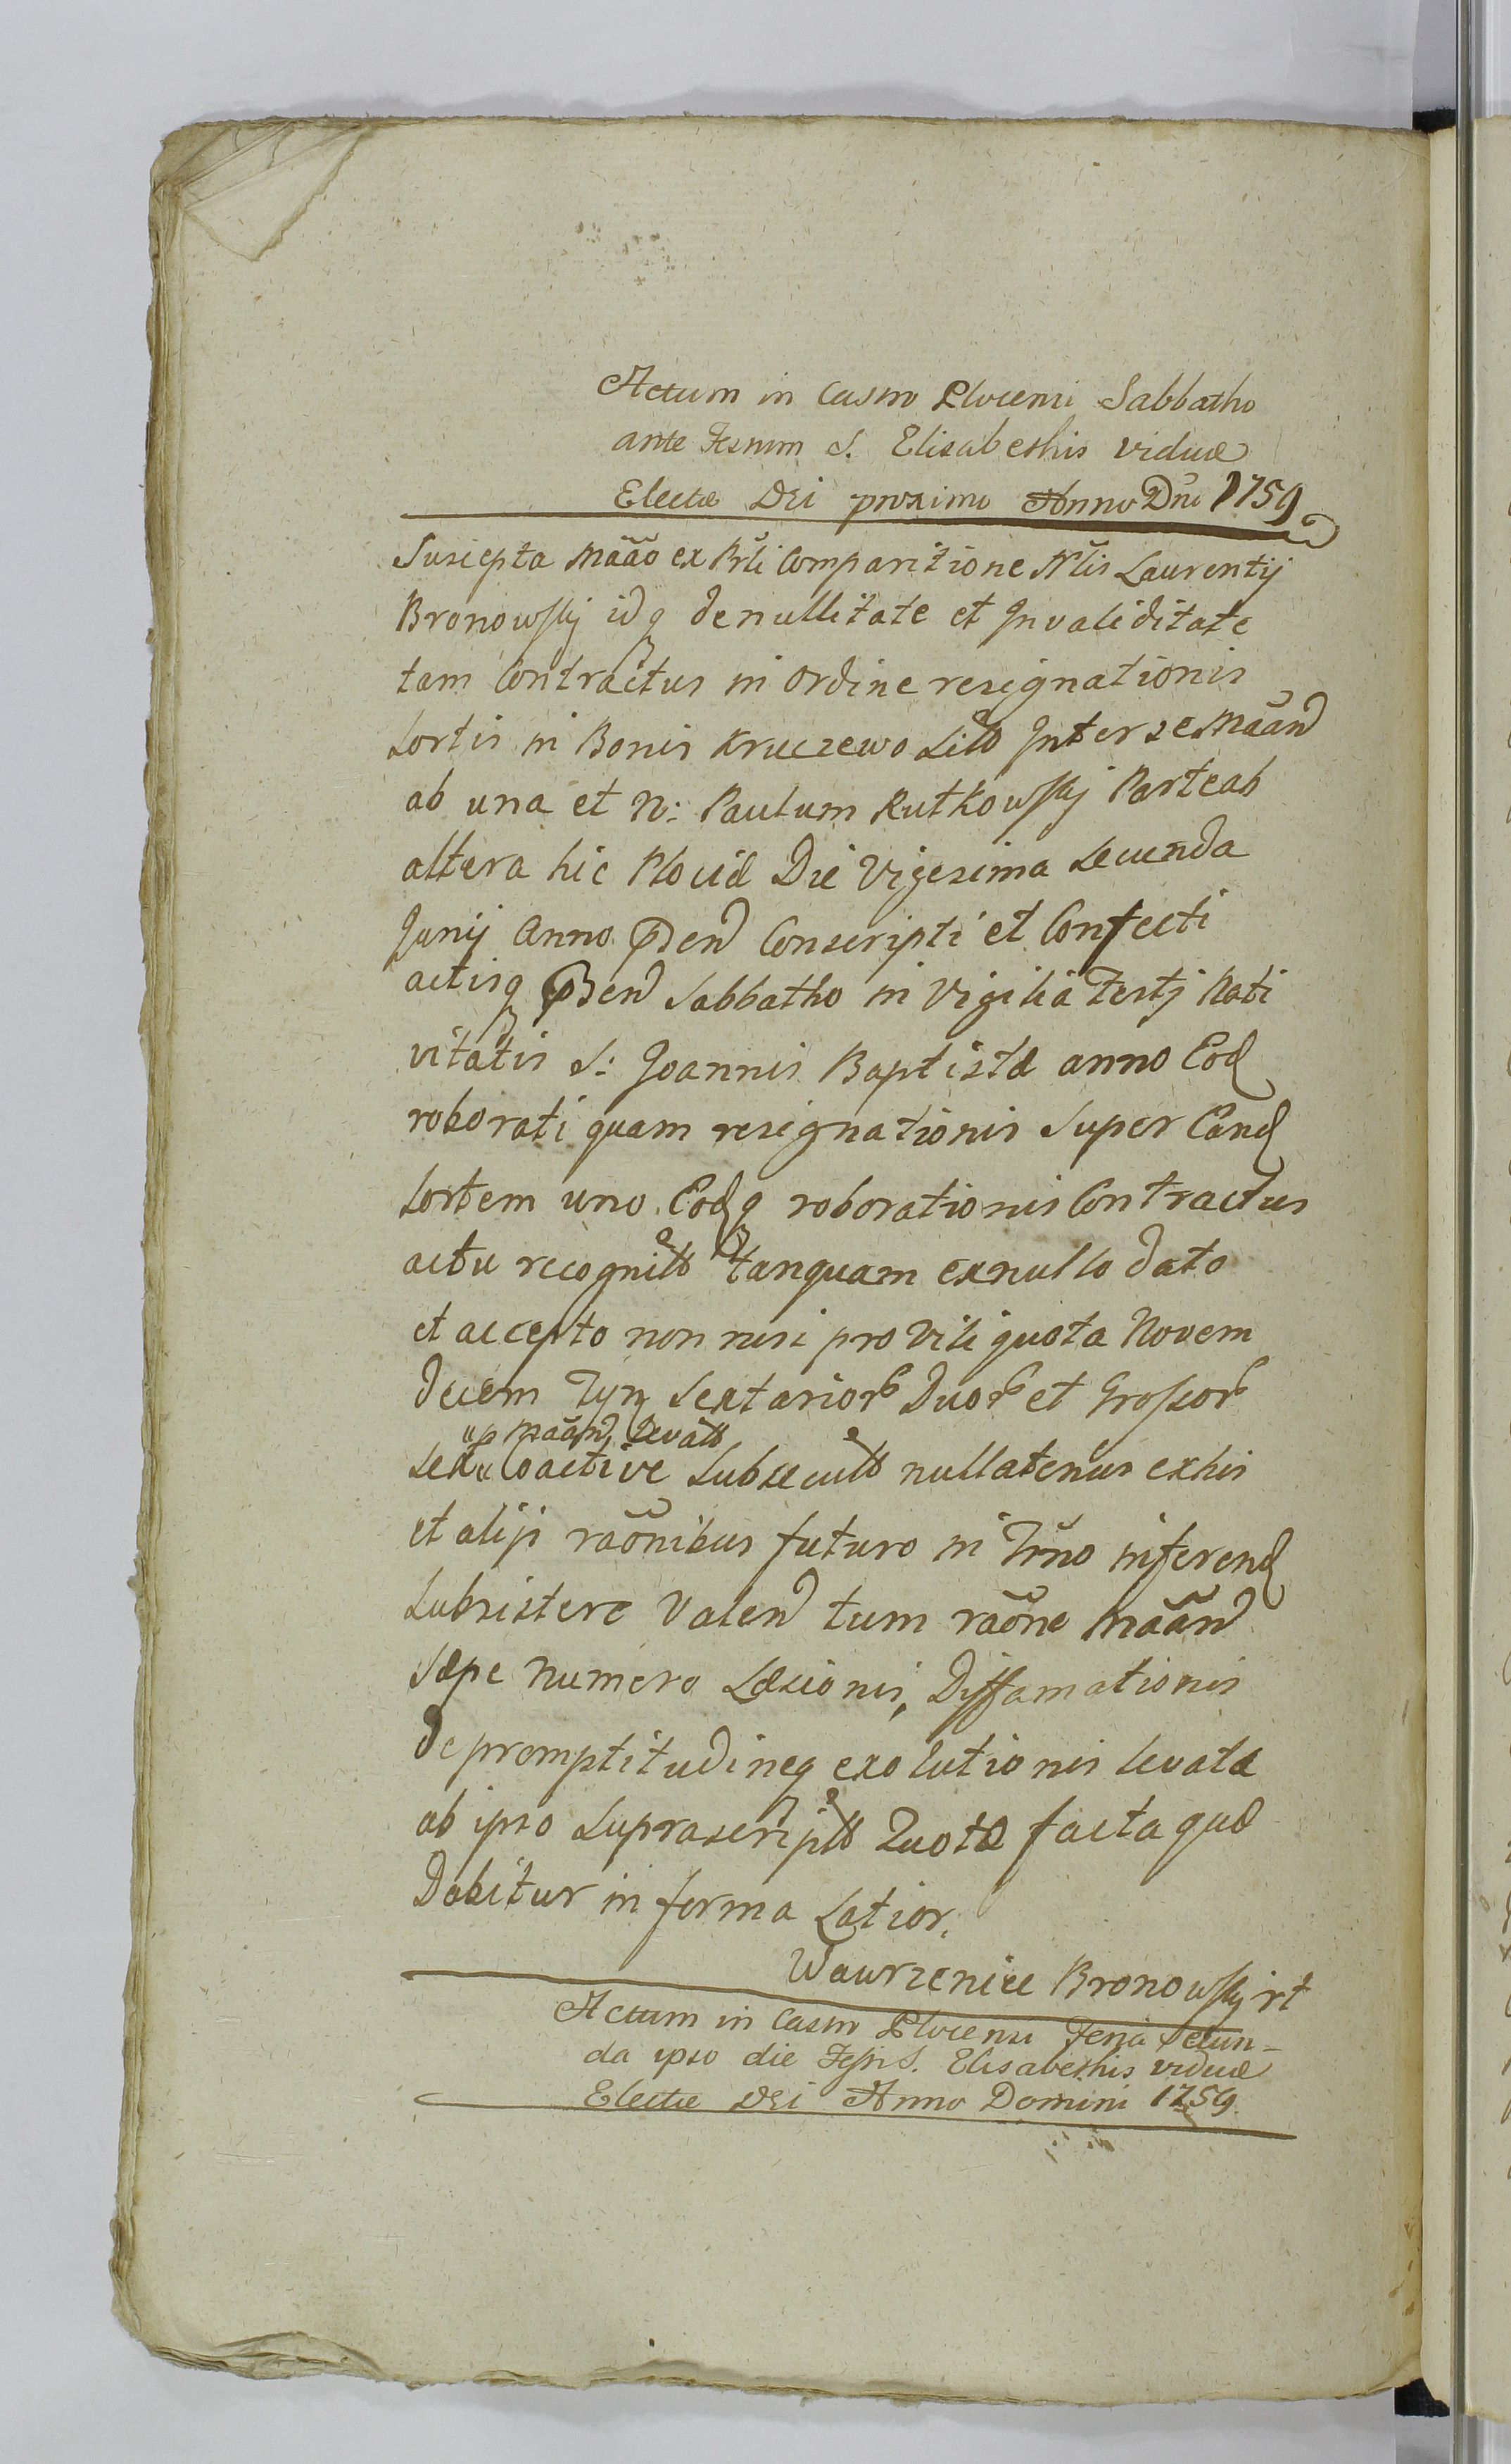 Actum in Castro Plocensi Sabbatho
ante Festum S. Elisabethis viduæ
Electæ Dei proximo Anno Dni 1759
Suscepta Mããо ex Prli Comparitione Nlis Laurentij
Bronowskj idq de nullitate et Invaliditate
tam Contractus in Ordine resignationis
Sortis in Bonis Kruczewo Sitæ Inter se Mããn
ab una et N: Paulum Rutkowskj Parte ab
altera hic Plociæ Die Vigesima Secunda
Junij Anno Conscripti et Confecti
actisq Sabbatho in Vigilia Festj Nati
vitatis S: Joannis Baptistæ anno Eod
roborati quam resignationis Super Eand
Sortem uno Eodq roborationis Contractus
actu recognitæ tanquam ex nullo dato
et accepto non nisi pro Vili quota Novem
decem Tyn Sextarior Duor et Grossor
up Mããn, Levatæ
Sex Coactive Subsecutæ nullatenus ex his
et alijs raõnibus futuro in Trno inferend
Subsistere Valen tum raõne Mããn
Sæpe numero Læsionis, Diffamationis
de promptitudineq exolutionis levatæ
ab ipso Suprascriptæ Quotæ facta quæ
Dabitur in forma Latior.
Wawrzeniec Bronowskj
Actum in Castro Plocensi Feria Secun-
da ipso die Festi S. Elisabethis viduæ
Electæ Dei Anno Domini 1759.